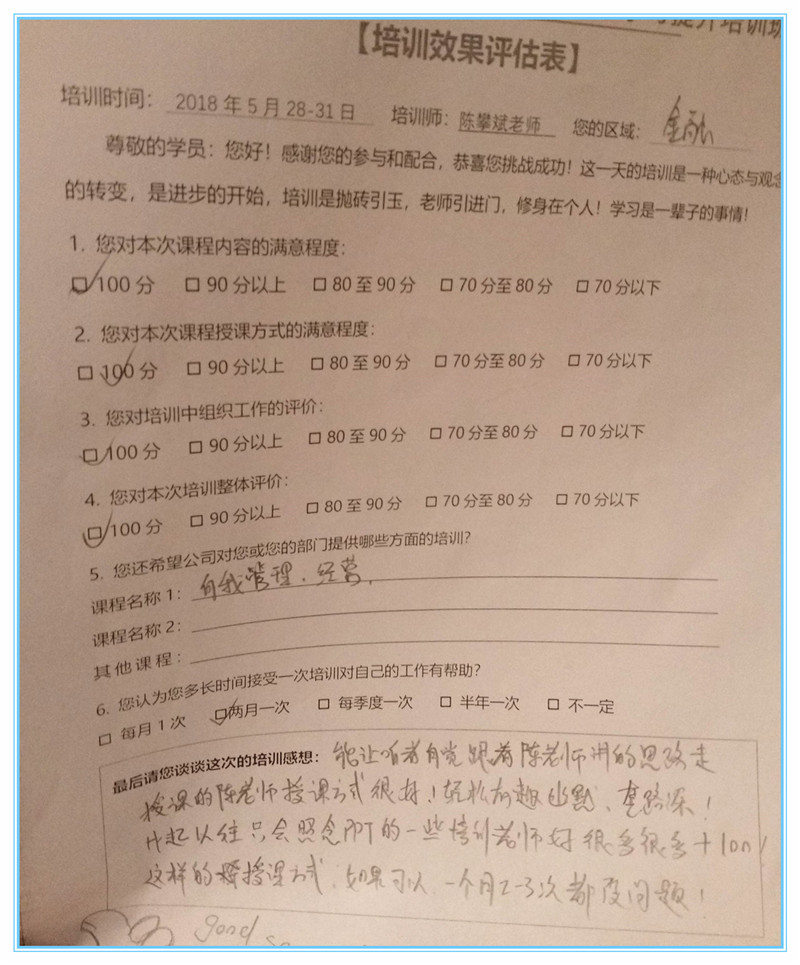 提升培训班
【培训效果评估表】
培训时间: 2018年5月28-31日 培训师: 陈攀斌老师 您的区域: 金融
尊敬的学员:您好!感谢您的参与和配合,恭喜您挑战成功!这一天的培训是一种心态与观念
的转变,是进步的开始,培训是抛砖引玉,老师引进门,修身在个人!学习是一辈子的事情!
1. 您对本次课程内容的满意程度:
□ 100分 □ 90分以上 □ 80至90分 □ 70分至80分 □ 70分以下
2. 您对本次课程授课方式的满意程度:
□ 100分 □ 90分以上 □ 80至90分 □ 70分至80分 □ 70分以下
3. 您对培训中组织工作的评价:
□ 100分 □ 90分以上 □ 80至90分 □ 70分至80分 □ 70分以下
4. 您对本次培训整体评价:
□ 100分 □ 90分以上 □ 80至90分 □ 70分至80分 □ 70分以下
5. 您还希望公司对您或您的部门提供哪些方面的培训?
课程名称1: 自我管理、经营.
课程名称2:
其他课程:
6. 您认为您多长时间接受一次培训对自己的工作有帮助?
□ 每月1次 □两月一次 □ 每季度一次 □ 半年一次 □ 不一定
最后请您谈谈这次的培训感想: 能让听者自觉跟着陈老师讲的思路走
授课的陈老师授课方式很好!轻松有趣幽默、套路深!
比起以往只会照念PPT的一些培训老师好很多很多+10n!
这样的授课方式,如果可以,一个月2-3次都没问题!
good